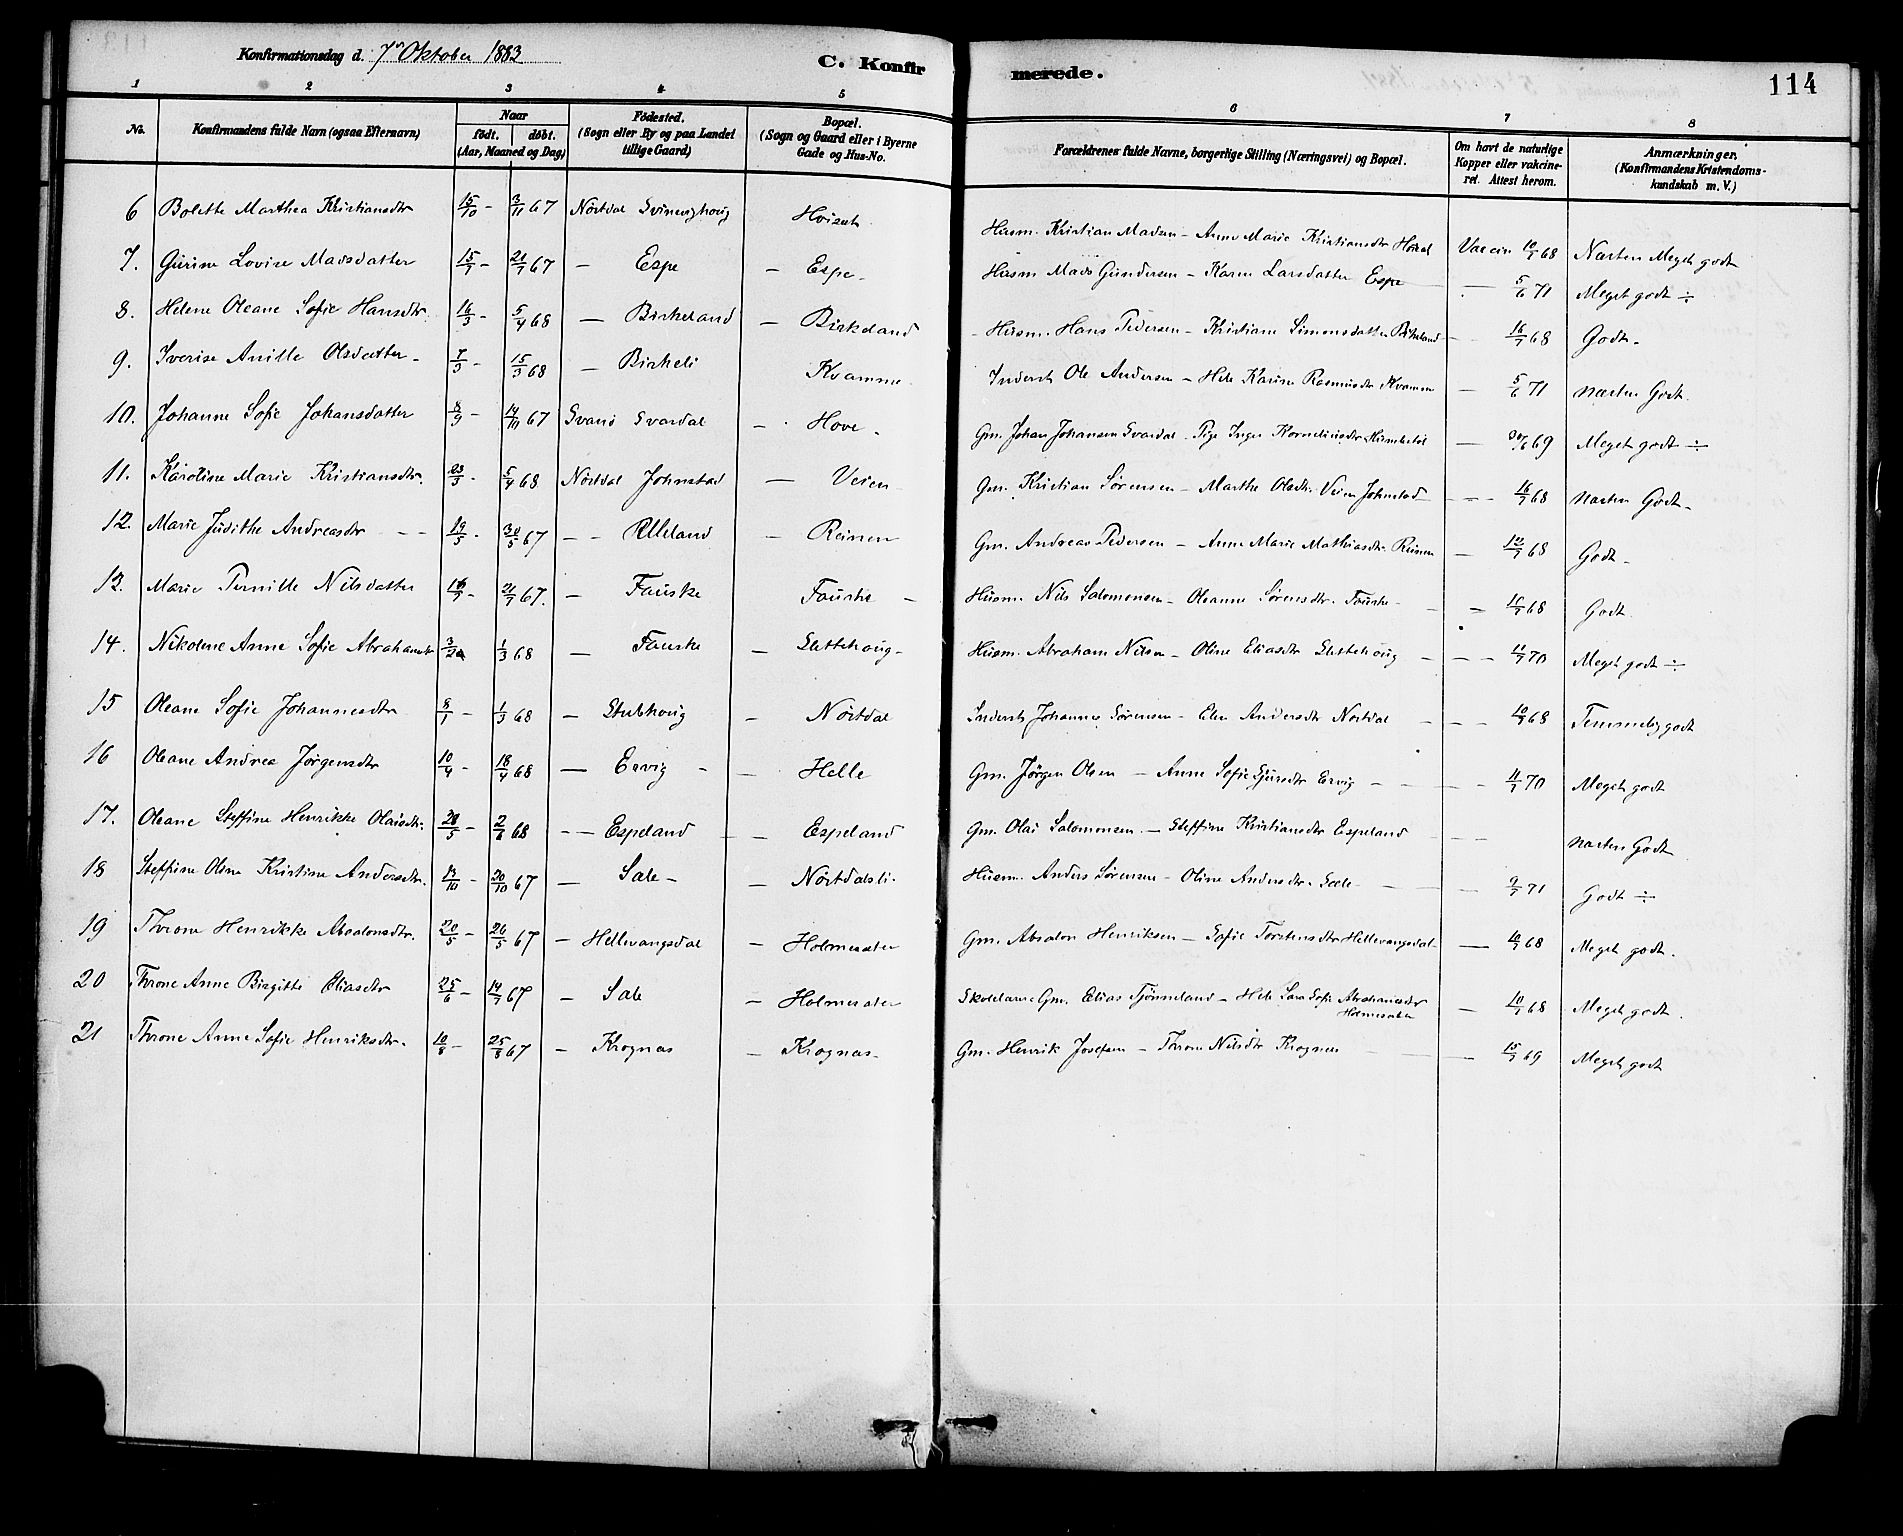 Konfirmationsdag d. 7de Oktober 1883
C. Konfirmerede.
114
1 2 3 4 5 6 7 8
No. Konfirmandens fulde Navn (ogsaa Efternavn) Naar født. døbt. (Aar, Maaned og Dag) Fødested. (Sogn eller By og paa Landet tillige Gaard) Bopæl. (Sogn og Gaard eller i Byerne Gade og Hus-No. Forældrenes fulde Navne, borgerlige Stilling (Næringsvei) og Bopæl. Om havt de naturlige Kopper eller vakcineret. Attest herom. Anmærkninger. (Konfirmandens Kristendomskundskab m. V.)
6 Bolette Marthea Kristiansdtr 15/10 - 3/11 67 Nordal Svinevighoug Husm. Kristian Madsen - Anne Marie Kristiansdtr Vaccin 10/7 68 Næsten Meget godt
7. Gurine Lovise Madsdatter 15/7 - 21/7 67 - Espe - Espe - Husm Mads Gundersen - Karen Larsdatter Espe - 5/6 71 Meget godt ÷
8. Helene Oleane Sofie Hansdtr. 16/3 - 5/4 68 - Birkeland - Birkeland - Husm. Hans Pedersen - Kristiane Simonsdatter Birkeland - 16/7 68 Godt -
9. Iverine Anille Olsdatter - 7/3 15/3 68 - Birkeli Kvamme - Inderst Ole Andersen - Hele Karine Rasmusdtr Kvamme - 5/6 71 næsten Godt.
10. Johanne Sofie Johansdatter 8/9 - 14/11 67 Svanø Svardal - Hove - Gm. Johan Johansen Svardal - Pige Inger Korneliusdtr - 30/6 69 Meget godt ÷
11. Karoline Marie Kristiansdtr. 23/3 - 5/4 68 Nordal Johnstad - Veien - Gm. Kristian Sørensen - Marthe Olsdtr. Veien Johnstad - 16/7 68 næsten Godt -
12. Marie Judithe Andreasdtr - 19/5 - 30/5 67 - Elleland - Reinen Gm. Andreas Pedersen - Anne Marie Mathiasdtr. Reinen - 12/7 68 Godt -
13. Marie Pernille Nilsdatter 16/7 - 21/7 67. - Fauske Fauske - Husm. Nils Salomonsen - Oleanne Sørensdtr. Fauske - 16/7 68 Godt.
14. Nikoline Anne Sofie Abrahamsdtr 3/2 1/3 68 - Fauske - Slettehoug - Husm. Abraham Nilsen - Oline Eliasdtr Slettehoug - 11/7 70 Meget godt ÷
15 Oleane Sofie Johannesdtr 8/1 - 1/3 68 - Stubhoug - Nordal Inderst Johannes Sørensen - Elen Andersdtr Nordal - 10/7 68 Temmelig godt
16 Oleane Andrea Jørgensdtr 10/4 - 18/4 68 - Ervig - - Helle Gm. Jørgen Olsen - Anne Sofie Sjursdtr Ervig - 11/7 70 Meget godt
17. Oleane Steffine Henrikke Olaisdtr. 28/5 - 2/6 68 - Espeland - Espeland Gm. Olai Salomonsen. - Steffine Kristiansdtr Espeland - næsten Godt
18 Steffine Oline Kristine Andersdtr. 13/10 - 20/10 67 - Sale - - Nordalsli. Husm. Anders Sørensen - Oline Andersdtr. Sale - 9/7 71 Godt ÷
19 Throne Henrikke Absalonsdtr. 20/5 - 26/5 67 - Hellevangsdal - Holmesater Gm. Absalon Henriksen - Sofie Torstensdtr Hellevangsdal - 10/7 68 Meget godt.
20 Throne Anne Birgitte Eliasdtr 25/6 - 14/7 67 - Sale - Holmesater Skolelærer Gm. Elias Tjønneland - Hele Lara Sofie Abrahamsdtr Holmesater - 10/7 68 Meget godt.
21 Throne Anne Sofie Henriksdtr. 10/8 - 25/8 67 - Krognas - Krognas - Gm. Henrik Josefsen - Throne Nilsdtr Krognas - 15/7 69 Meget godt